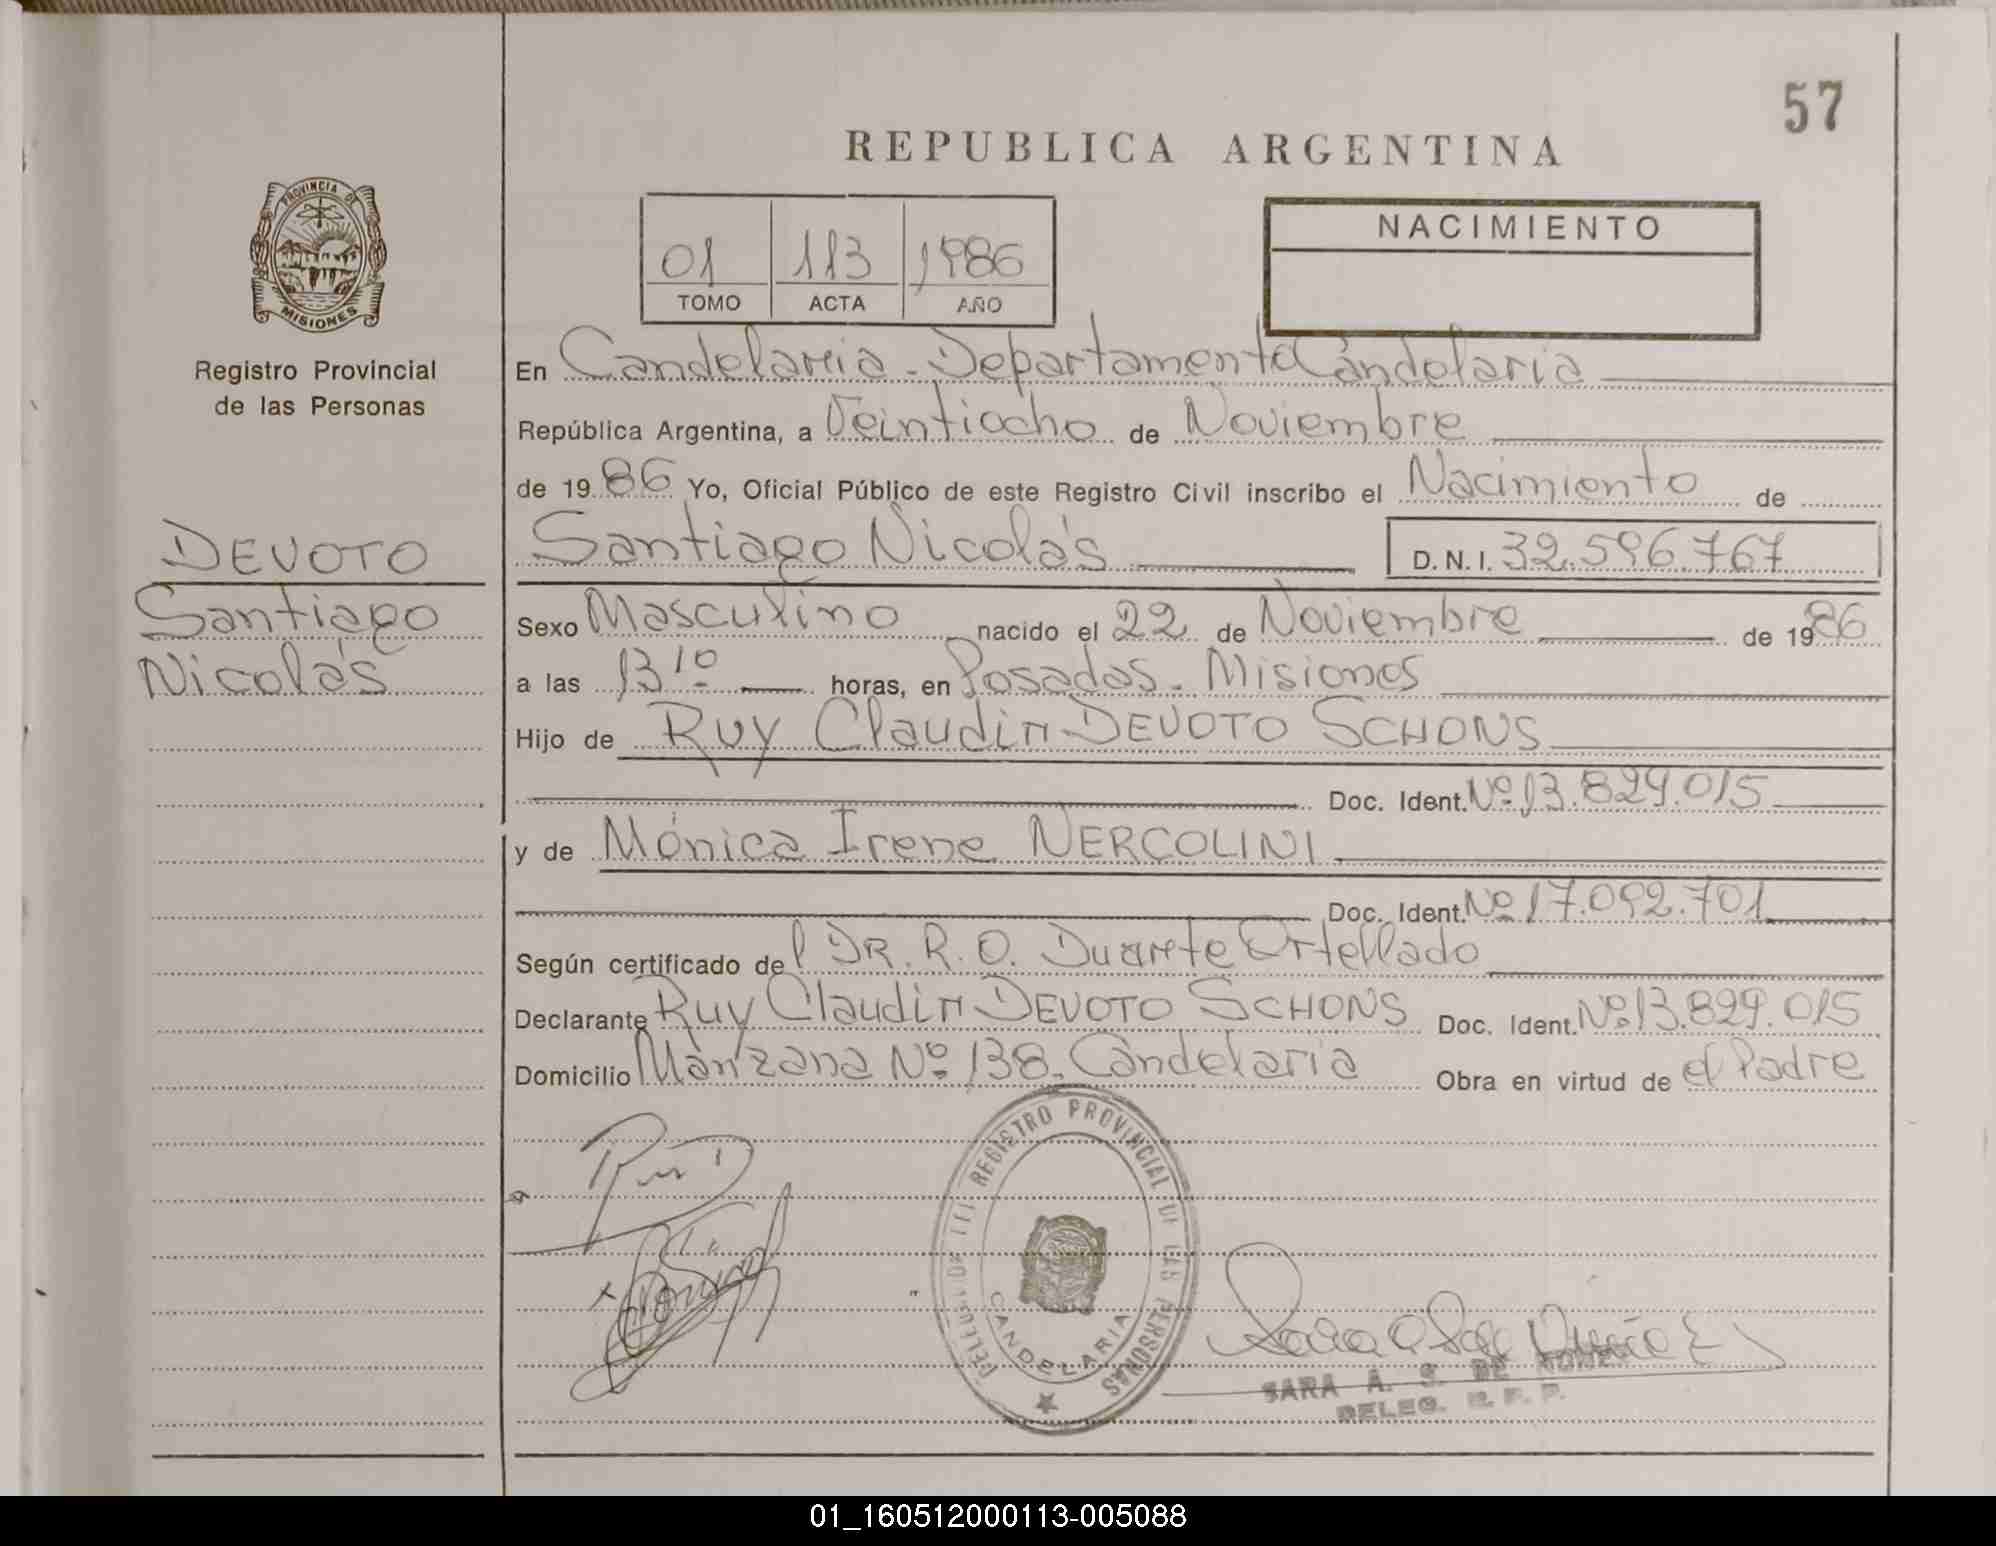 57
REPUBLICA ARGENTINA
PROVINCIA DE
MISIONES
Registro Provincial
de las Personas
01 113 1986
TOMO ACTA AÑO
NACIMIENTO
En Candelaria - Departamento Candelaria
República Argentina, a Veintiocho de Noviembre
de 1986 Yo, Oficial Público de este Registro Civil inscribo el Nacimiento de
Santiago Nicolás D. N. I. 32.596.767
DEVOTO
Santiago
Nicolás
Sexo Masculino nacido el 22 de Noviembre de 1986
a las 13 10 horas, en Posadas - Misiones
Hijo de Ruy Claudin DEVOTO SCHONS
Doc. Ident. Nº 13.829.015
y de Mónica Irene NERCOLINI
Doc. Ident. Nº 17.092.701
Según certificado del DR. R. O. Duarte Ortellado
Declarante Ruy Claudin DEVOTO SCHONS Doc. Ident. Nº 13.829.015
Domicilio Manzana Nº 138 - Candelaria Obra en virtud de el Padre
REGISTRO PROVINCIAL DE LAS PERSONAS
CANDELARIA
SARA A. S. DE
DELEG. R. P. P.
01_160512000113-005088